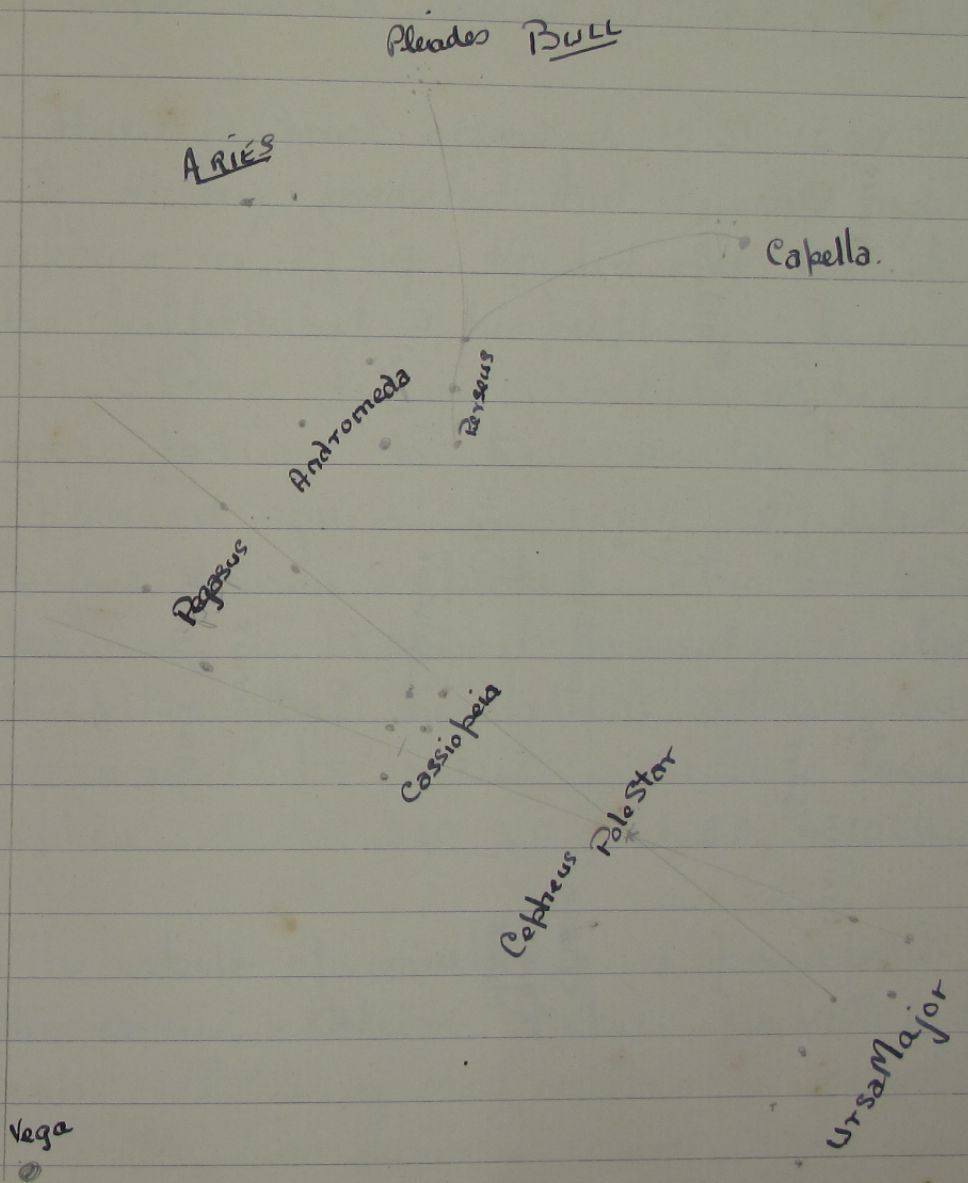 Pleiades BULL
ARIES
Capella.
Perseus
Andromeda
Pegasus
Cassiopeia
Pole Star
Cepheus
Ursa Major
Vega